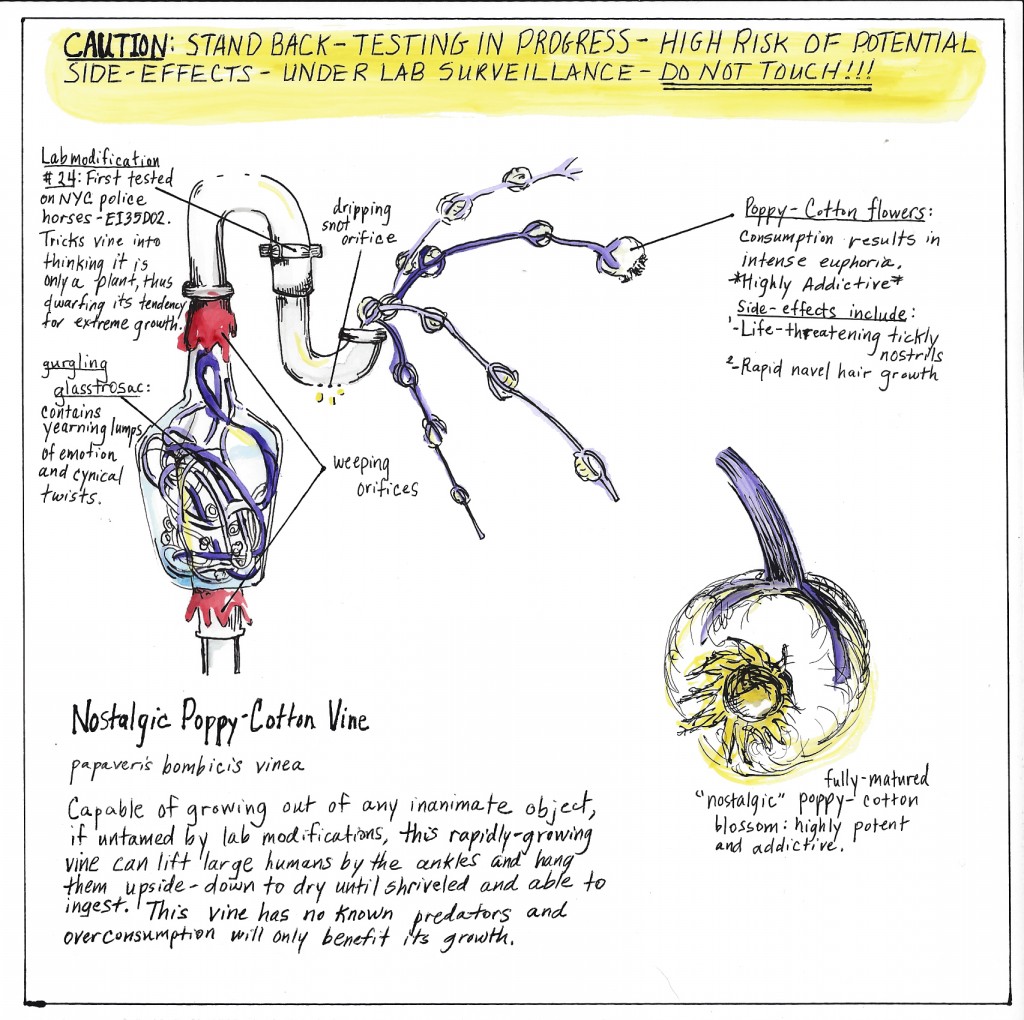 CAUTION: STAND BACK - TESTING IN PROGRESS - HIGH RISK OF POTENTIAL
SIDE-EFFECTS - UNDER LAB SURVEILLANCE - DO NOT TOUCH!!!
Lab modification
#24: First tested
on NYC police
horses - EI35D02.
Tricks vine into
thinking it is
only a plant, thus
dwarfing its tendency
for extreme growth.
gurgling
glasstrosac:
contains
yearning lumps
of emotion
and cynical
twists.
dripping
snot
orifice
weeping
orifices
Poppy-Cotton flowers:
consumption results in
intense euphoria.
*Highly Addictive*
Side-effects include:
1-Life-threatening tickly
nostrils
2-Rapid navel hair growth
Nostalgic Poppy-Cotton Vine
papaveris bombicis vinea
Capable of growing out of any inanimate object,
if untamed by lab modifications, this rapidly-growing
vine can lift large humans by the ankles and hang
them upside-down to dry until shriveled and able to
ingest. This vine has no known predators and
overconsumption will only benefit its growth.
fully-matured
"nostalgic" poppy-cotton
blossom: highly potent
and addictive.